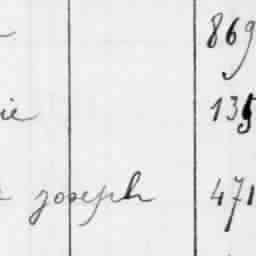 869
135
joseph 471